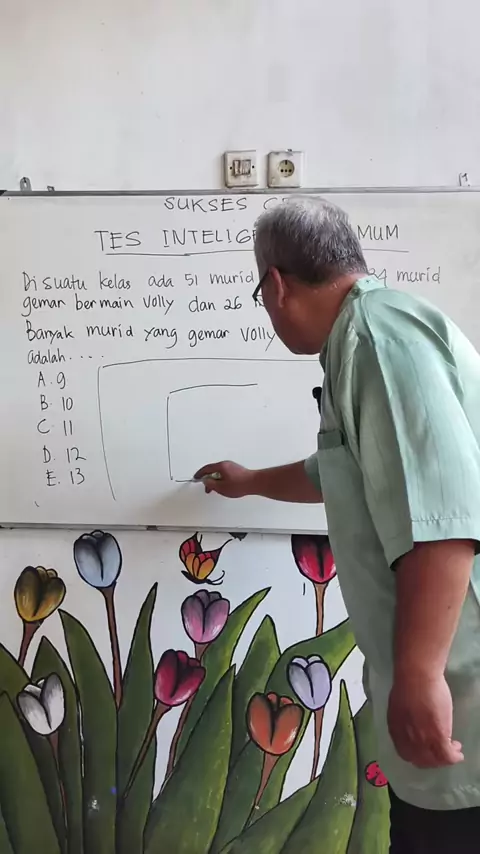 SUKSES
TES INTELIGE UMUM
Di suatu kelas ada 51 murid 34 murid
gemar bermain Volly dan 26
Banyak murid yang gemar Volly
adalah....
A. 9
B. 10
C. 11
D. 12
E. 13